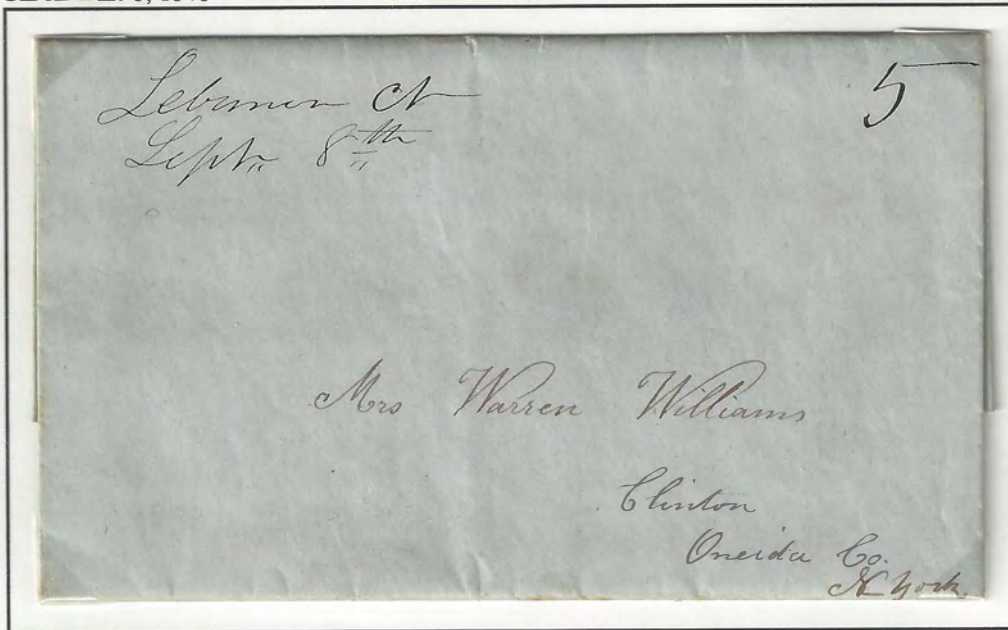 Lebanon Ct
5
Sept. 8th
Mrs Warren Williams
Clinton
Oneida Co.
N York.